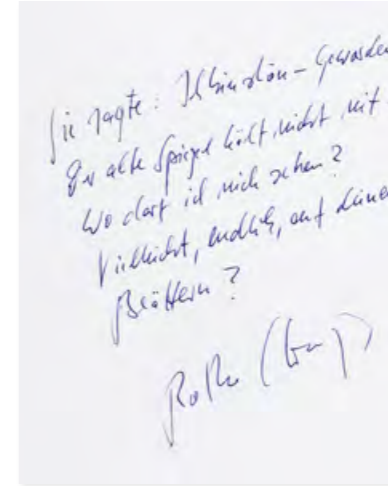 Sie sagte: Ich bin schön – geworden
Der alte Spiegel hält nicht mit
Wo darf ich mich sehen?
Vielleicht, endlich, auf deinen
Blättern?